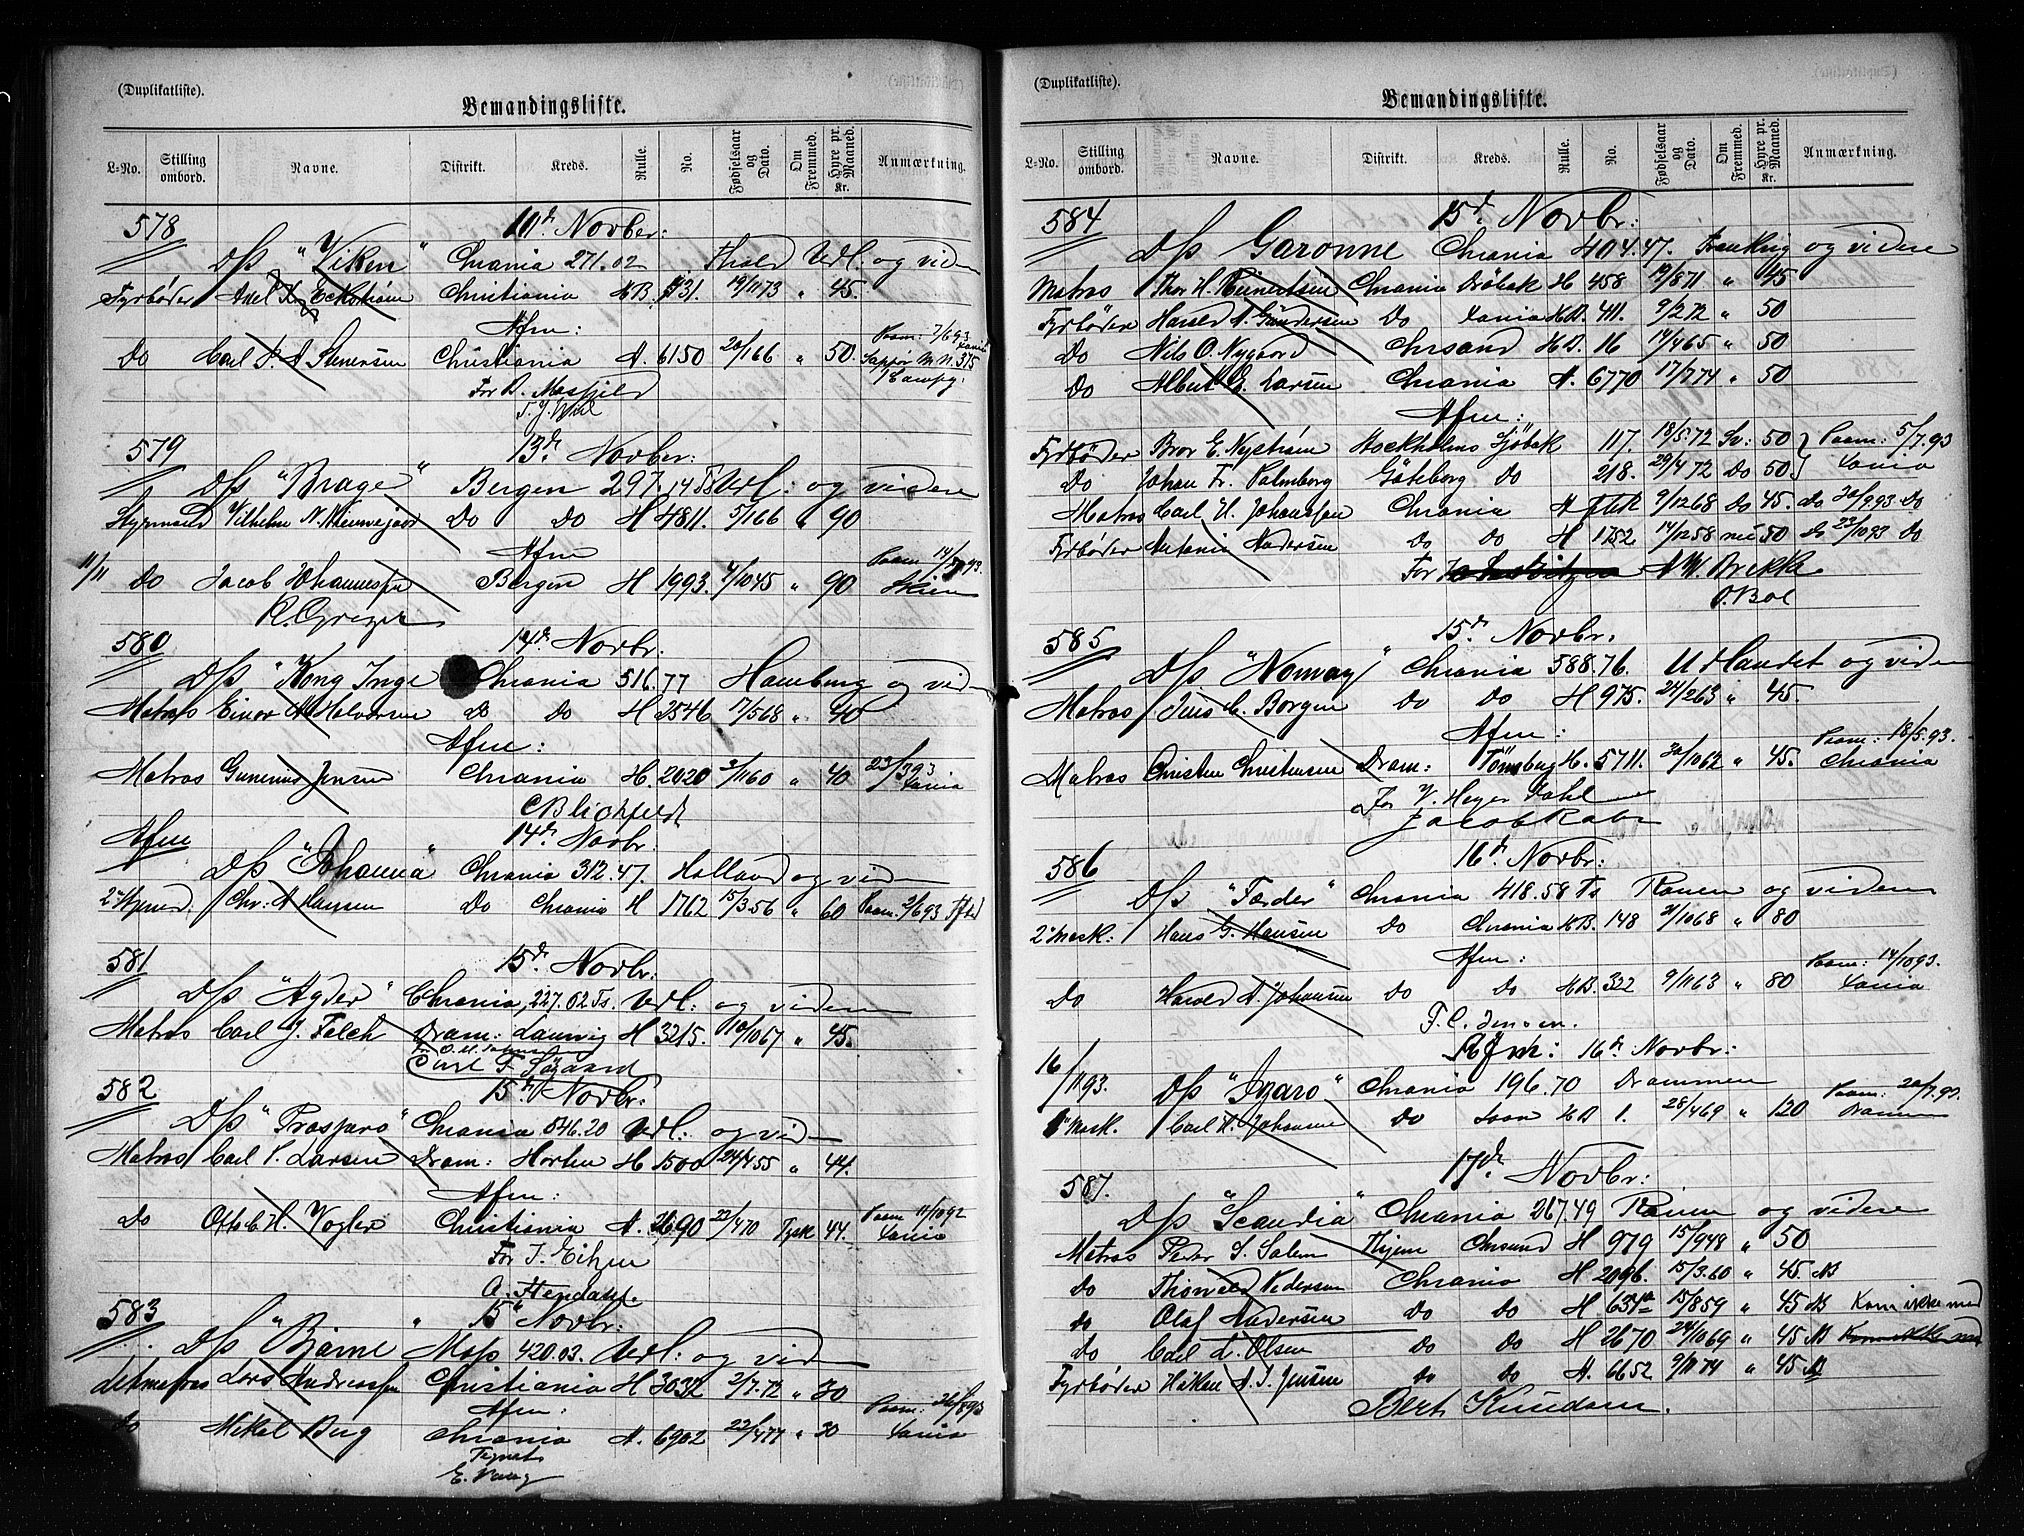 (Duplikatliste).
Bemandingsliste.
L-No. Stilling ombord. Navne. Distrikt. Kreds. Rulle. No. Fødselsaar og Dato. Om Fremmed. Hyre pr. Maaned. Kr. Anmærkning.
578 10de Novber:
D/S "Viken" Chrania 271.02 Udl. og vid
Fyrbøder Axel Eckstrøm Christiania HB. 19/11 73 " 45.
Afm:
Do Carl Stenersen Christiania A. 6150 20/1 66 " 50. Paam: 7/6 93
579 13de Novber:
D/S "Brage" Bergen 297.14 Udl: og videre
Styrmand Vilhelm N. Do Do H 4811. 5/1 66 " 90
Afm
11/11 Do Jacob Johannessen Bergen H 1993. 4/10 45 " 90 Skien
580 14de Novbr.
D/S "Kong Inge" Chrania 516.77 Hamburg og vid
Matros Einar A Halvorsen do do H 2546 17/5 68 " 40
Afm:
Matros Gunerius Jensen Chrania H. 2020 2/11 60 " 40 Xania
C Blichfeldt
Afm 14de Novbr.
D/S "Johanna" Chrania 312.47. Holland og viden
2 Styrmd. Chr. A Hansen Do Chrania H 1762 15/3 56 " 60 Paam. 2/6 93
581 15de Novbr:
D/S "Agder" Chrania, 227.02 Ts. Udl: og viden
Matros Carl J. Falch Dram: Laurvig H 3215. 10/10 67 " 45.
Carl F Søgaard
582 15de Novbr:
D/S "Prospero" Chrania 546.20 Udl: og vid
Matros Carl Larsen Dram: Horten H 1500 " 44.
Afm:
Do Otto C. H. Vogler Christiania A. 22/4 70 Tysk 44. Paam 11/10 92 Xania
For J. Eitzen
583 15de Novbr:
D/S "Bjarne" Moss 420.03. Udl: og vid
Letmatros Lars Andreassen Christiania H 3032 2/7. 72 " 30
Afm:
Do Mikal Berg Chrania A. 6902 22/4 77 " 30 Xania
(Duplikatliste).
Bemandingsliste.
L-No. Stilling ombord. Navne. Distrikt. Kreds. Rulle. No. Fødselsaar og Dato. Om Fremmed. Hyre pr. Maaned. Kr. Anmærkning.
584 15de Novbr:
D/S Garonne Chrania 404.47. Frankrig og videre
Matros Thor H. Reinertsen Chrania Drøbak H 458 19/8 71 " 45
Fyrbøder Harald A. Gundersen Do Xania HB. 411. 9/2 72 " 50
Do Nils O. Nygaard Chrsand HB. 16 14/4 65 " 50
Do Albert G. Larsen Chrania A. 6770 17/7 74 " 50
Afm:
Fyrbøder Bror E. Nystrøm Stockholms Sjöbek 117. 18/5. 72 Sv: 50 Paam: 5/7. 93
Do Johan Fr. Palmborg Göteborg do 218. 29/4 72 Do 50 Xania
Matros Carl H. Johansson Chrania A 9/12 68 Do 45. Do 20/9 93 Do
Fyrbøder Antonio Andersen Do Do H 1752 14/12 58 50 Do 23/10 93 Do
For A W. Brekke
O. Bol
585 15de Novbr:
D/S "Norway" Chrania 588.76. Udlandet og viden
Matros Jens C. Borgen do do H 975. 24/2 63 " 45.
Afm:
Matros Christen Christensen Dram: Tönsberg H. 5711. 20/10 62 " 45. Paam: 18/5. 93. Chrania
For V. Meyer Dahl
586 16de Novbr:
D/S "Færder" Chrania 418.58 Ts Rouen og viden
2 Mask: Hans G. Hansen Do Chrania HB. 148 21/10 68 " 80
Afm:
Do Harald A. Johansen Do Do HB. 322 9/11 63 " 80 Paam: 14/10 93. Xania
F. C. Jensen.
16/11 93. Afm: 16de Novbr:
D/S "Ingaro" Chrania 196.70 Drammen
1 Mask. Carl H. Johansen Do Xania HB 1. 28/4 69 " 120 Drammen
587. 17de Novbr:
D/S "Scandia" Chrania 267.49 Rouen og videre
Matros Peder S. Salem Thjem Chrsund H 979 15/9 48 " 50
do Thomas Pedersen Chrania H 2096. 15/3. 60 " 45.
do Olaf Andersen Do Do H 15/8 59 " 45 Kom ikke med
do Carl L. Olsen do do H 2670 24/10 69 " 45 Kom ikke med
Fyrbøder Håken A. J. Jensen do do A. 6652 9/11 74 " 45
Bert Knudsen.